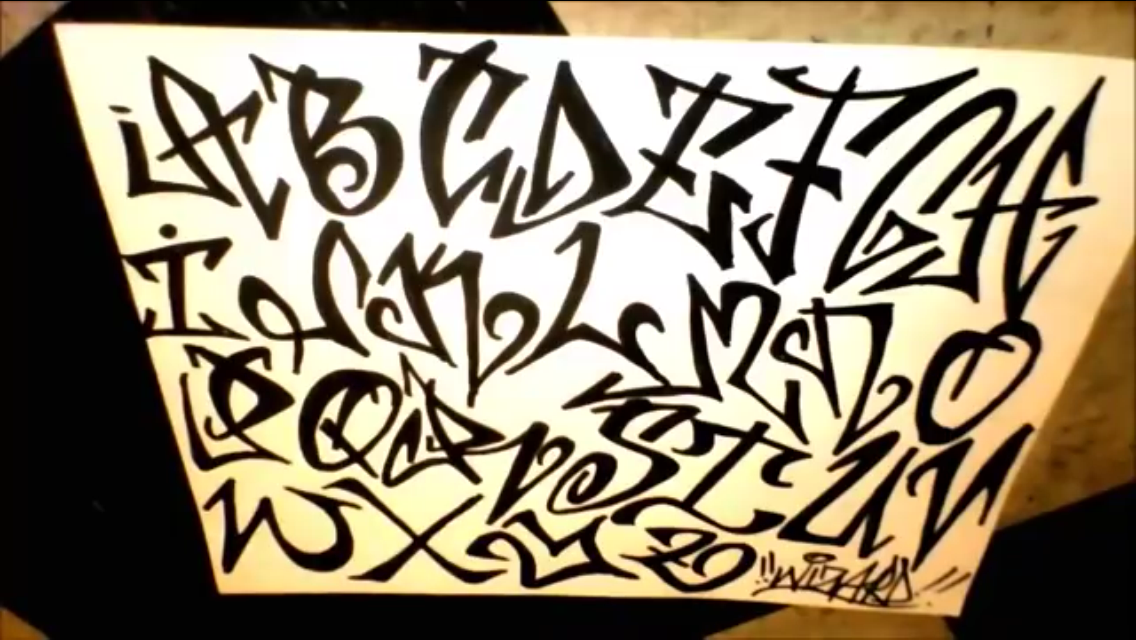 A B C D E F G H
I J K L M N O
P Q R S T U V
W X Y Z "WIZARD"